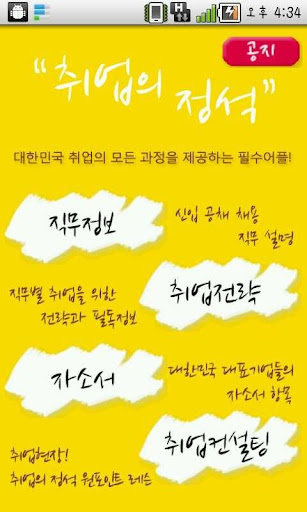 오후 4:34
공지
"취업의 정석"
대한민국 취업의 모든 과정을 제공하는 필수어플!
직무정보
신입 공채 채용
직무 설명
직무별 취업을 위한
전략과 필독정보
취업전략
자소서
대한민국 대표기업들의
자소서 항목
취업현장!
취업의 정석 원포인트 레슨
취업컨설팅